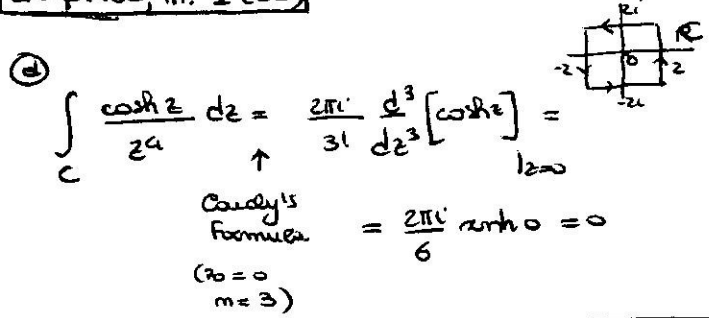 2i
C
-2 0 2
-2i
(d)
∫_C cosh z / z^4 dz = 2πi / 3! d^3/dz^3 [cosh z] |z=0 =
↑
Cauchy's
Formula = 2πi / 6 sinh 0 = 0
(z0 = 0
m = 3)